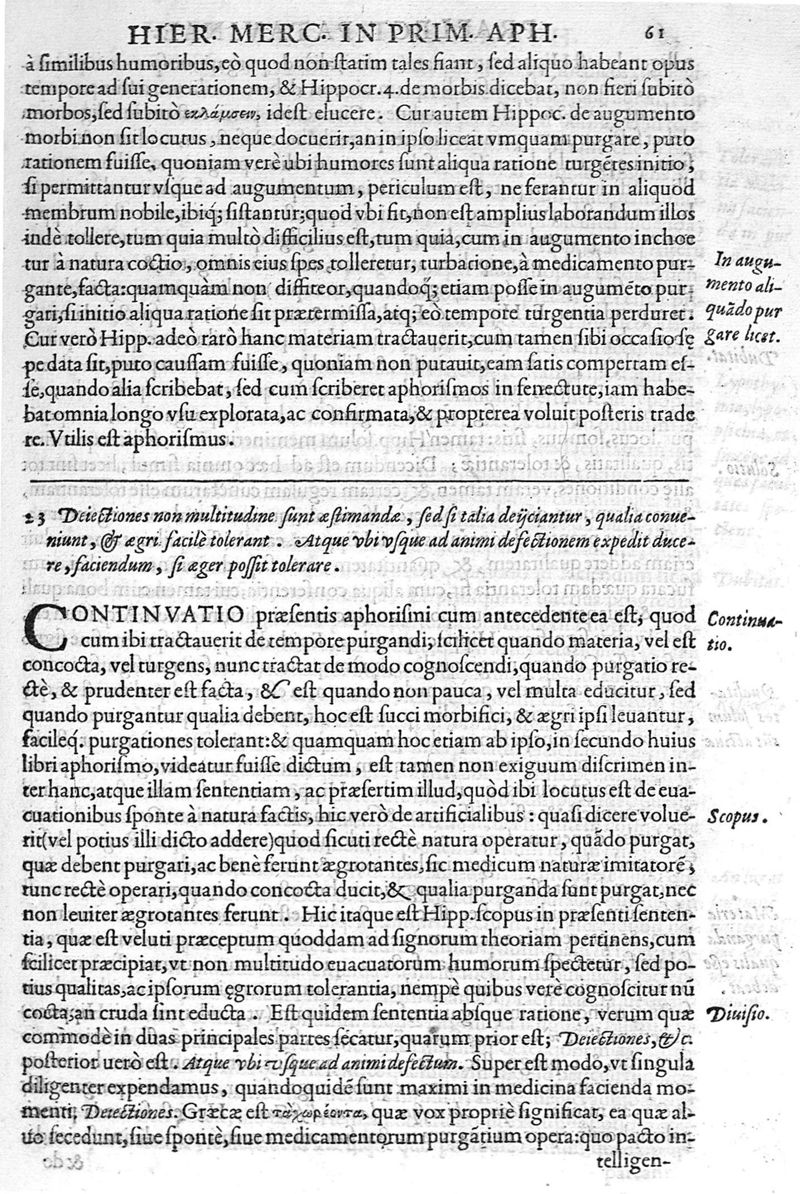 HIER. MERC. IN PRIM. APH. 61
à similibus humoribus, eò quod non statim tales fiant, sed aliquo habeant opus
tempore ad sui generationem, & Hippocr. 4. de morbis dicebat, non fieri subitò
morbos, sed subitò ἐκλάμσειν, idest elucere. Cur autem Hippoc. de augumento
morbi non sit locutus, neque docuerit, an in ipso liceat vmquam purgare, puto
rationem fuisse, quoniam verè vbi humores sunt aliqua ratione turgẽtes initio,
si permittantur vsque ad augumentum, periculum est, ne ferantur in aliquod
membrum nobile, ibiq; sistantur; quod vbi fit, non est amplius laborandum illos
indè tollere, tum quia multò difficilius est, tum quia, cum in augumento inchoe
tur à natura coctio, omnis eius spes tolleretur, turbatione, à medicamento pur-
gante, facta: quamquàm non diffiteor, quandoq; etiam posse in augumẽto pur-
gari, si initio aliqua ratione sit prætermissa, atq; eo tempore turgentia perduret.
In augu-
mento ali-
quãdo pur
gare licet.
Cur verò Hipp. adeò rarò hanc materiam tractauerit, cum tamen sibi occasio sę
pe data sit, puto caussam fuisse, quoniam non putauit, eam satis compertam es-
se, quando alia scribebat, sed cum scriberet aphorismos in senectute, iam habe-
bat omnia longo vsu explorata, ac confirmata, & propterea voluit posteris trade
re. Vtilis est aphorismus.
23 Deiectiones non multitudine sunt æstimandæ, sed si talia deijciantur, qualia conue-
niunt, & ægri facilè tolerant. Atque vbi vsque ad animi defectionem expedit duce-
re, faciendum, si æger possit tolerare.
CONTINVATIO præsentis aphorismi cum antecedente ea est, quod
Continua-
tio.
cum ibi tractauerit de tempore purgandi, scilicet quando materia, vel est
concocta, vel turgens, nunc tractat de modo cognoscendi, quando purgatio re-
ctè, & prudenter est facta, & est quando non pauca, vel multa educitur, sed
quando purgantur qualia debent, hoc est succi morbifici, & ægri ipsi leuantur,
facileq. purgationes tolerant: & quamquam hoc etiam ab ipso, in secundo huius
libri aphorismo, videatur fuisse dictum, est tamen non exiguum discrimen in-
ter hanc, atque illam sententiam, ac præsertim illud, quòd ibi locutus est de eua-
cuationibus sponte à natura factis, hic verò de artificialibus: quasi dicere volue-
Scopus.
rit (vel potius illi dicto addere) quod sicuti rectè natura operatur, quãdo purgat,
quæ debent purgari, ac benè ferunt ægrotantes, sic medicum naturæ imitatorẽ,
tunc rectè operari, quando concocta ducit, & qualia purganda sunt purgat, nec
non leuiter ægrotantes ferunt. Hic itaque est Hipp. scopus in præsenti senten-
tia, quæ est veluti præceptum quoddam ad signorum theoriam pertinens, cum
scilicet præcipiat, vt non multitudo euacuatorum humorum spectetur, sed po-
tius qualitas, ac ipsorum ęgrorum tolerantia, nempè quibus vere cognoscitur nũ
cocta, an cruda sint educta. Est quidem sententia absque ratione, verum quæ
Diuisio.
commodè in duas principales partes secatur, quarum prior est; Deiectiones, &c.
posterior uerò est. Atque vbi vsque ad animi defectum. Super est modo, vt singula
diligenter expendamus, quandoquidẽ sunt maximi in medicina facienda mo-
menti; Deiectiones. Græcæ est τὰ χωρέοντα, quæ vox propriè significat, ea quæ al-
uo secedunt, siue spontè, siue medicamentorum purgãtium opera: quo pacto in-
telligen-